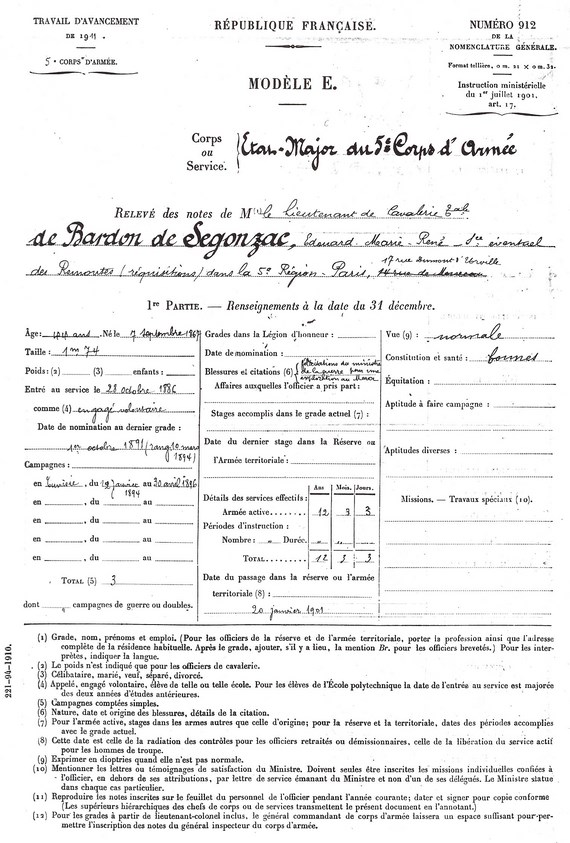 TRAVAIL D'AVANCEMENT
DE 1911.
5e CORPS D'ARMÉE.
RÉPUBLIQUE FRANÇAISE.
MODÈLE E.
NUMÉRO 912
DE LA
NOMENCLATURE GÉNÉRALE.
Format tellière, 0 m. 21 × 0 m. 32.
Instruction ministérielle
du 1er juillet 1901.
art. 17.
Corps
ou
Service.
Etat-Major du 5e Corps d'Armée
RELEVÉ des notes de M (1) le lieutenant de Cavalerie
de Bardon de Segonzac, Edouard Marie René
17 rue Dumont d'Urville
des Remontes (réquisitions) dans la 5e Région - Paris, 14 rue de Monceau
1re PARTIE. — Renseignements à la date du 31 décembre.
Age: ans. Né le 7 septembre 1867
Taille: 1m 74
Poids: (2) (3) enfants:
Entré au service le 28 octobre 1886
comme (4) engagé volontaire
Date de nomination au dernier grade:
1er octobre 1891 (rang 10 mars
1894)
Campagnes:
en Tunisie, du 19 janvier au 30 avril 1896
1894
en , du au
en , du au
en , du au
en , du au
TOTAL (5) 3
dont campagnes de guerre ou doubles.
Grades dans la Légion d'honneur:
Date de nomination:
Blessures et citations (6) félicitations du ministre
de la guerre pour une
exploration au Maroc
Affaires auxquelles l'officier a pris part:
Stages accomplis dans le grade actuel (7):
Date du dernier stage dans la Réserve ou
l'Armée territoriale:
Ans Mois. Jours.
Détails des services effectifs:
Armée active 12 3 3
Périodes d'instruction:
Nombre: " Durée. " "
TOTAL 12 3 3
Date du passage dans la réserve ou l'armée
territoriale (8):
20 janvier 1901
Vue (9): normale
Constitution et santé: bonnes
Équitation:
Aptitude à faire campagne:
Aptitudes diverses:
Missions. — Travaux spéciaux (10).
(1) Grade, nom, prénoms et emploi. (Pour les officiers de la réserve et de l'armée territoriale, porter la profession ainsi que l'adresse
complète de la résidence habituelle. Après le grade, ajouter, s'il y a lieu, la mention Br. pour les officiers brevetés.) Pour les inter-
prètes, indiquer la langue.
(2) Le poids n'est indiqué que pour les officiers de cavalerie.
(3) Célibataire, marié, veuf, séparé, divorcé.
(4) Appelé, engagé volontaire, élève de telle ou telle école. Pour les élèves de l'École polytechnique la date de l'entrée au service est majorée
des deux années d'études antérieures.
(5) Campagnes comptées simples.
(6) Nature, date et origine des blessures, détails de la citation.
(7) Pour l'armée active, stages dans les armes autres que celle d'origine; pour la réserve et la territoriale, dates des périodes accomplies
avec le grade actuel.
(8) Cette date est celle de la radiation des contrôles pour les officiers retraités ou démissionnaires, celle de la libération du service actif
pour les hommes de troupe.
(9) Exprimer en dioptries quand elle n'est pas normale.
(10) Mentionner les lettres ou témoignages de satisfaction du Ministre. Doivent seules être inscrites les missions individuelles confiées à
l'officier, en dehors de ses attributions, par lettre de service émanant du Ministre et non d'un de ses délégués. Le Ministre statue
dans chaque cas particulier.
(11) Reproduire les notes inscrites sur le feuillet du personnel de l'officier pendant l'année courante; dater et signer pour copie conforme
(Les supérieurs hiérarchiques des chefs de corps ou de services transmettent le présent document en l'annotant.)
(12) Pour les grades à partir de lieutenant-colonel inclus, le général commandant de corps d'armée laissera un espace suffisant pour per-
mettre l'inscription des notes du général inspecteur du corps d'armée.
221-94-1910.